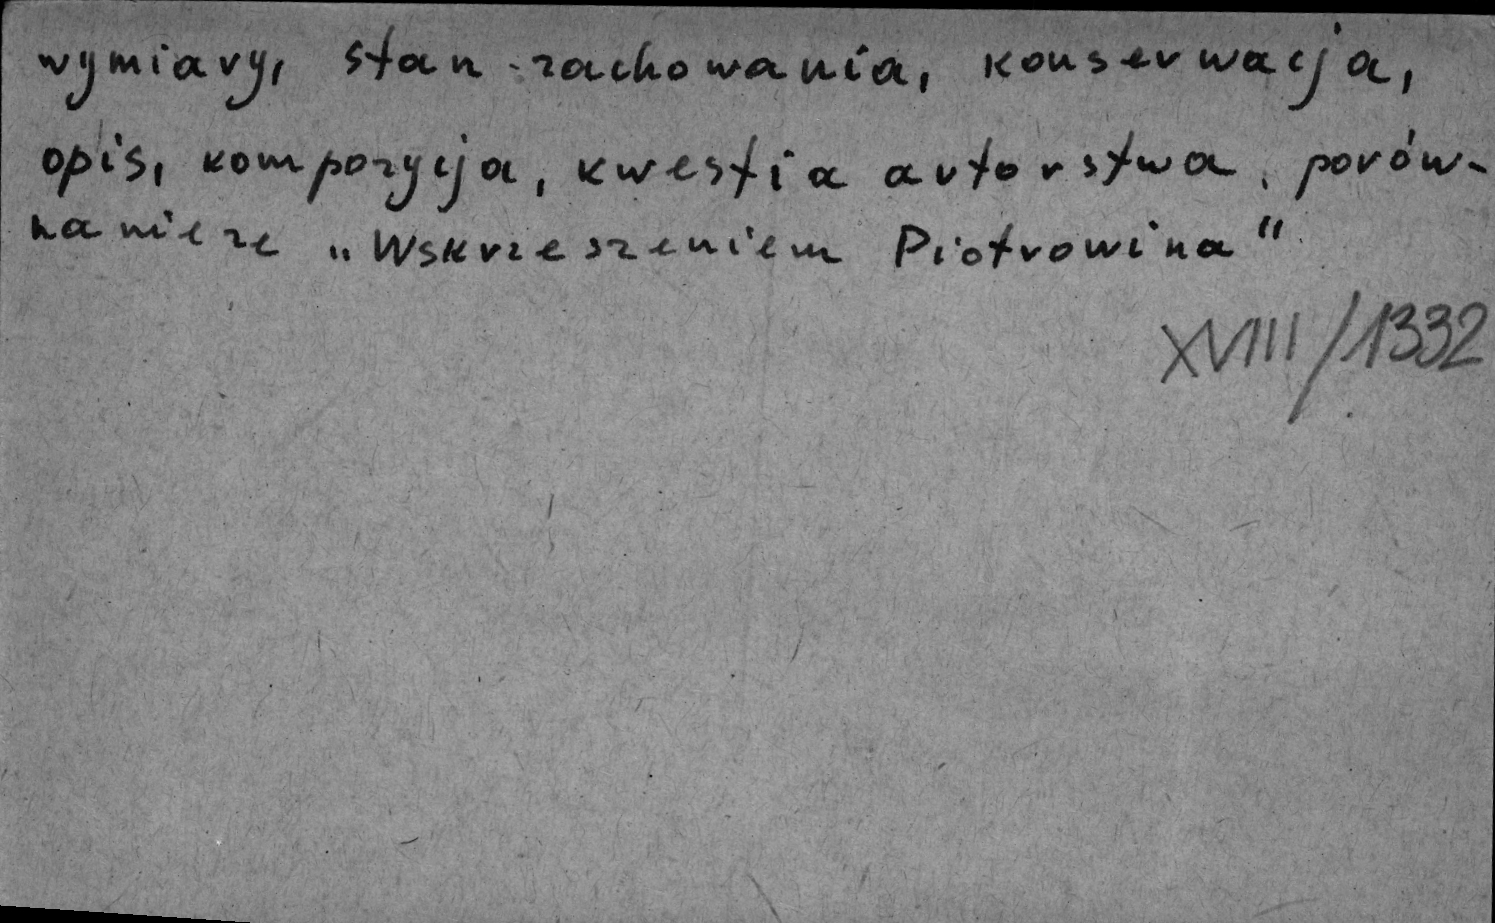 wymiary, stan zachowania, konserwacja,
opis, kompozycja, kwestia autorstwa, porów-
nanie ze „Wskrzeszeniem Piotrowina"
XVIII/1332